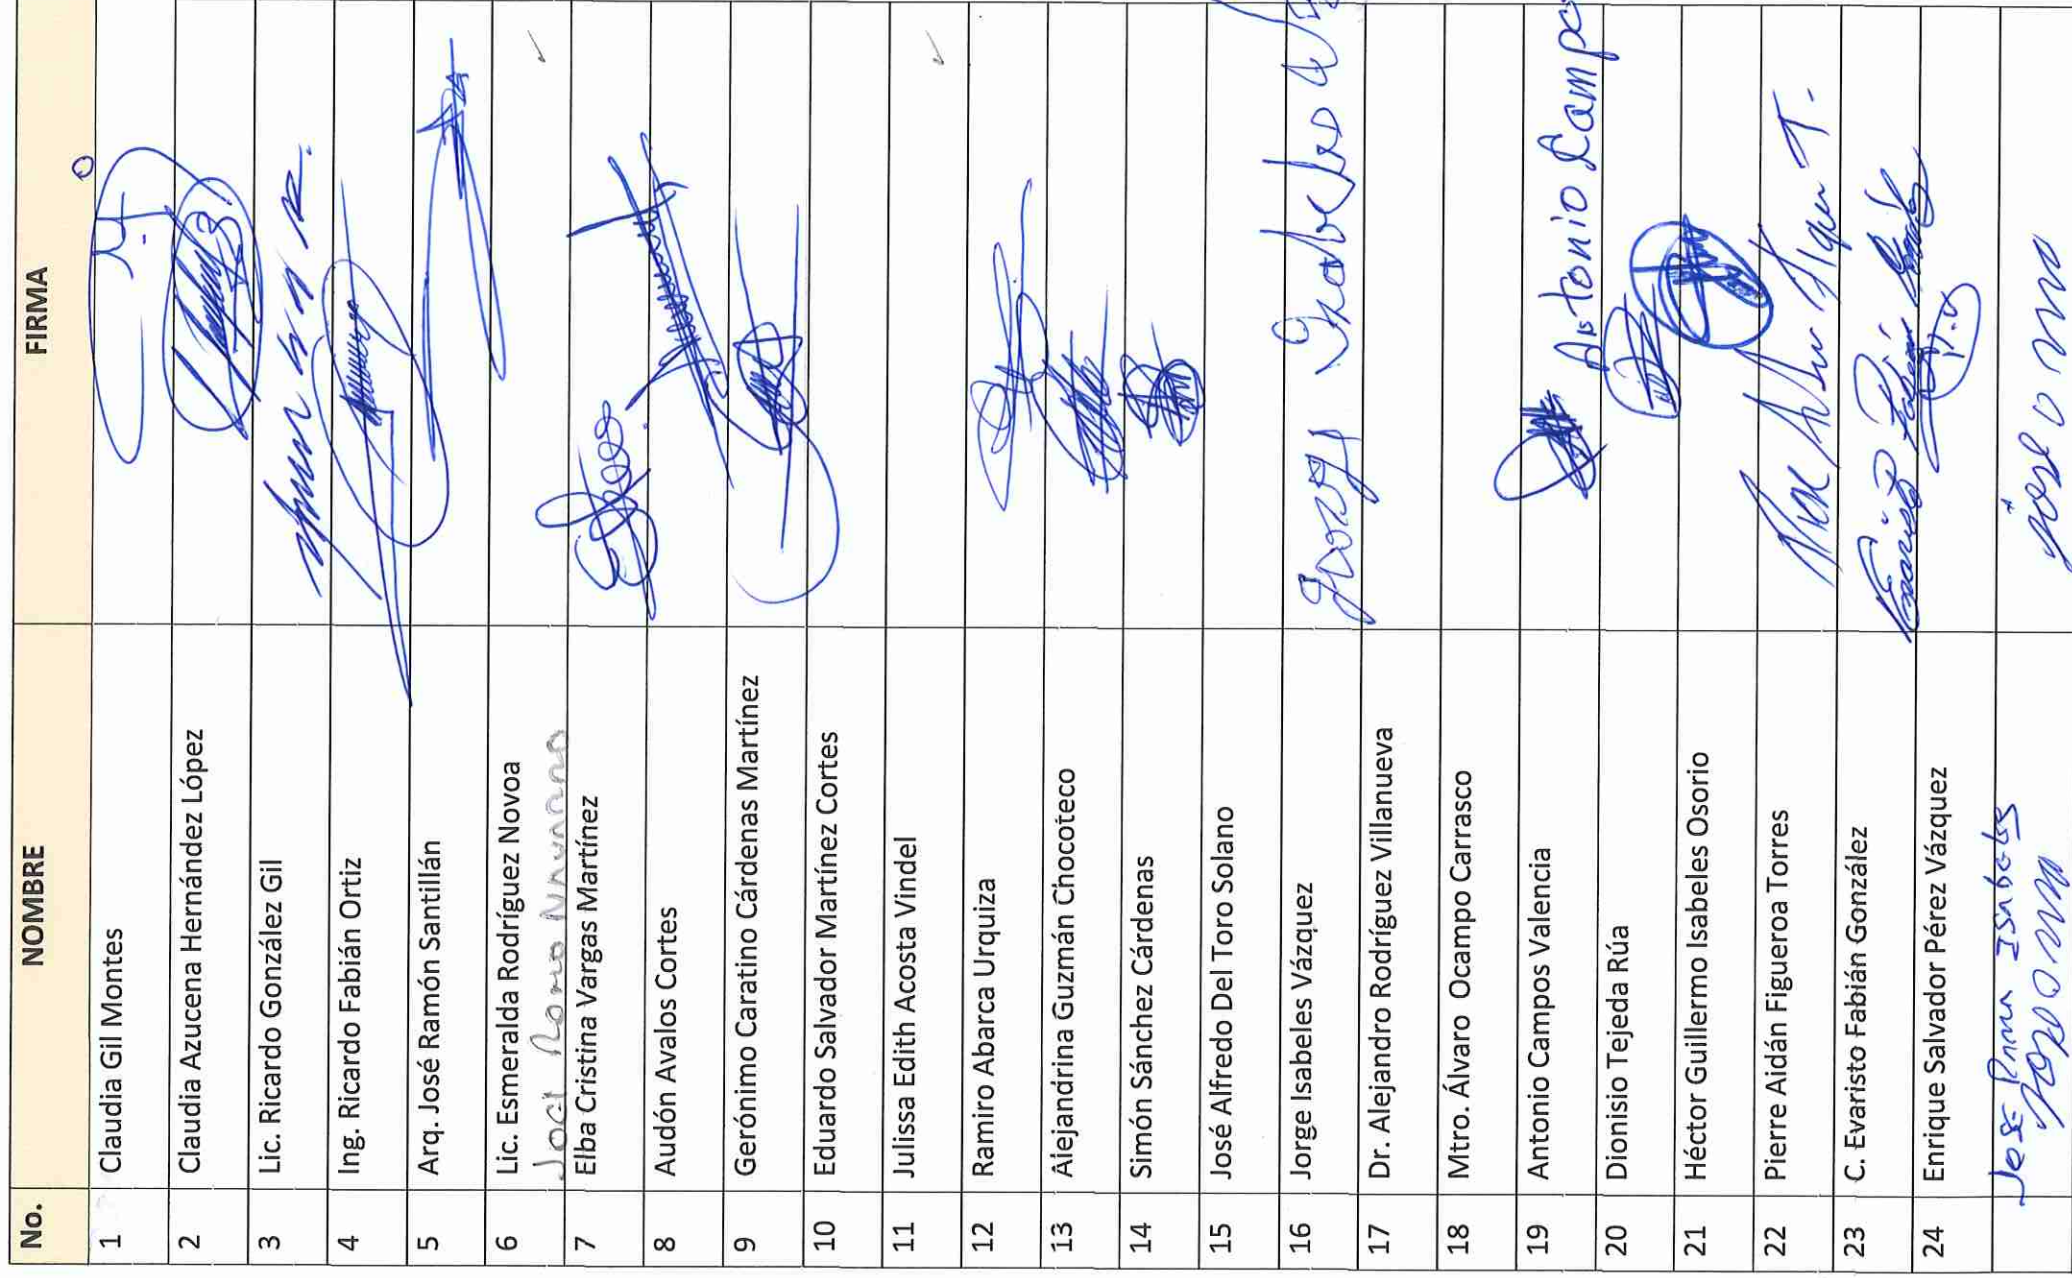 No. NOMBRE FIRMA
1 Claudia Gil Montes
2 Claudia Azucena Hernández López
3 Lic. Ricardo González Gil
4 Ing. Ricardo Fabián Ortiz
5 Arq. José Ramón Santillán
6 Lic. Esmeralda Rodríguez Novoa
7 Elba Cristina Vargas Martínez
8 Audón Avalos Cortes
9 Gerónimo Caratino Cárdenas Martínez
10 Eduardo Salvador Martínez Cortes
11 Julissa Edith Acosta Vindel
12 Ramiro Abarca Urquiza
13 Alejandrina Guzmán Chocoteco
14 Simón Sánchez Cárdenas
15 José Alfredo Del Toro Solano
16 Jorge Isabeles Vázquez
17 Dr. Alejandro Rodríguez Villanueva
18 Mtro. Álvaro Ocampo Carrasco
19 Antonio Campos Valencia Antonio Campo
20 Dionisio Tejeda Rúa
21 Héctor Guillermo Isabeles Osorio
22 Pierre Aidán Figueroa Torres
23 C. Evaristo Fabián González
24 Enrique Salvador Pérez Vázquez